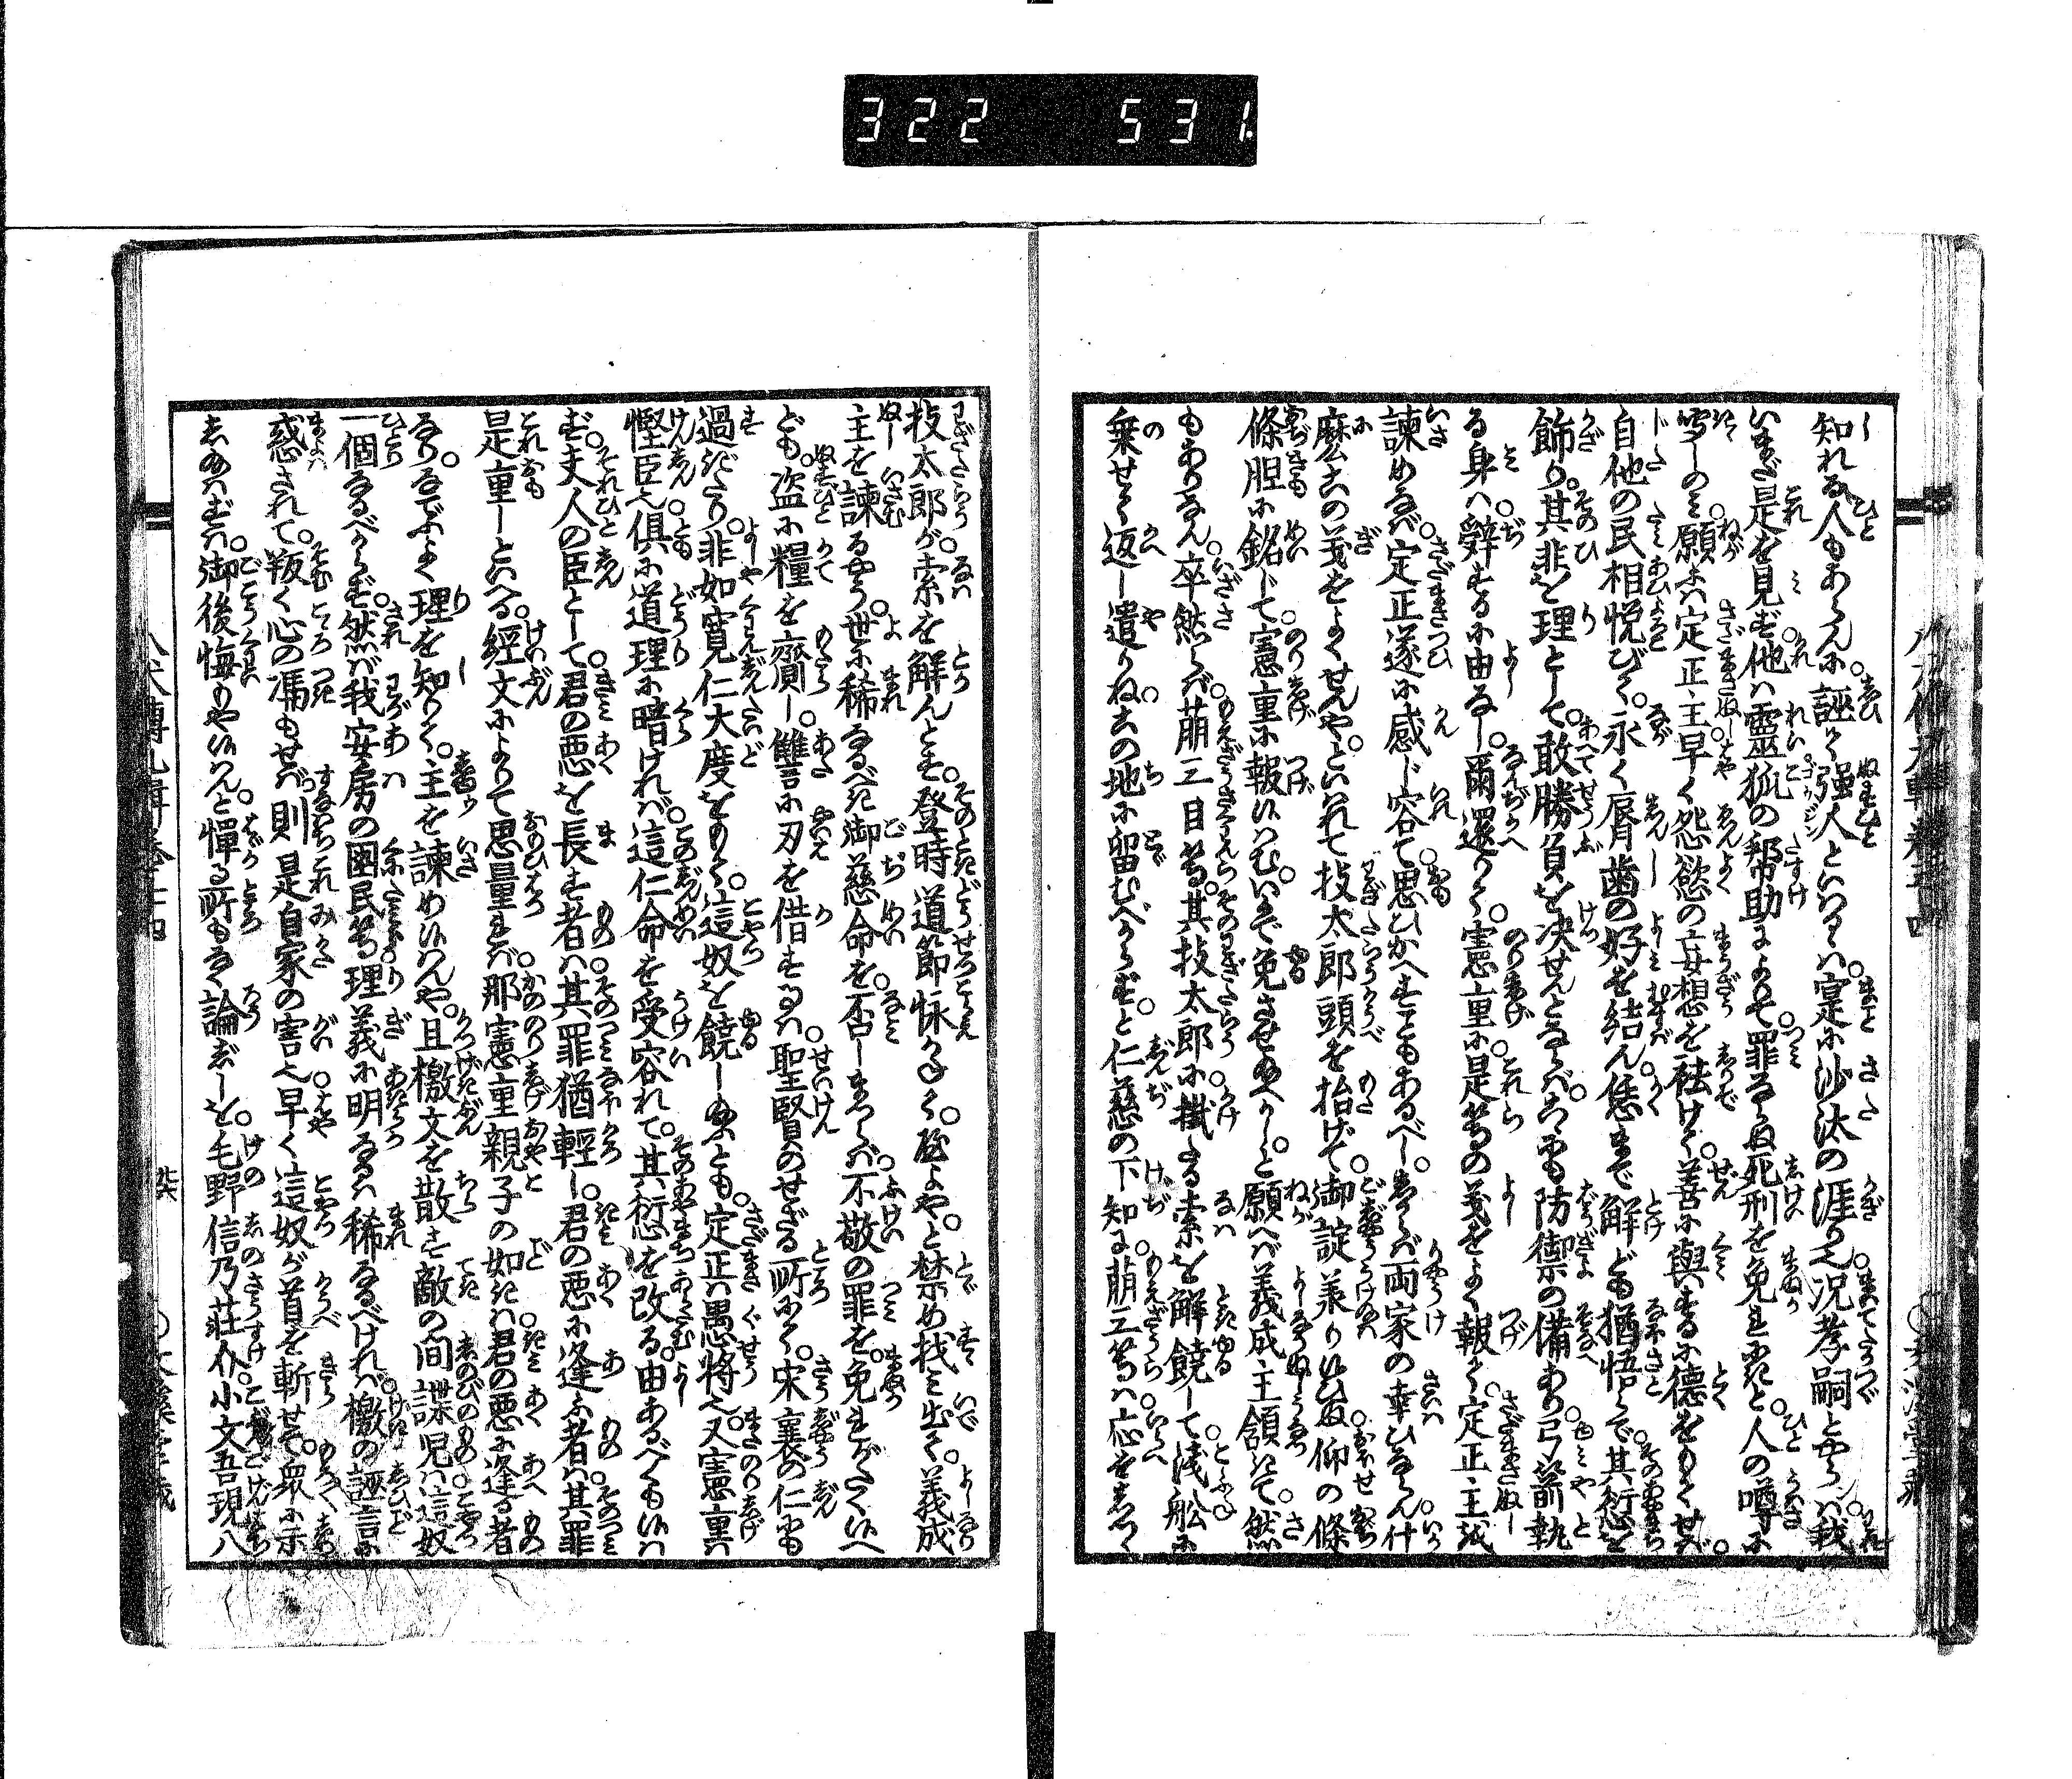 322 531
知れる人もあらんに。誣て強人といはるゝは。寔に沙汰の涯り也。况孝嗣とやらは。我
いまだ是を見ず。他は靈狐の幇助によりて。罪なき死刑を免れきと。人の噂に
聞しのみ。願ふは定正主。早く怨慾の妄想を袪けて。善に與するに德をもてせば。
自他の民相悦びて。永く脣齒の好を結ん。恁まで解ども猶悟らで。其愆を
飾り。其非を理として。敢勝負を决せんとならば。こゝにも防禦の備あり。弓箭執
る身は辭するに由なし。爾還りて。憲重に是等の義をよく報て。定正主を
諫めなば。定正遂に感じ容て。思ひかへすこともあるべし。しからば両家の幸ひならん。什
麼この義をよくせんや。といはれて技太郎頭を抬げて。御諚羕り候ひぬ。仰の條
條胆に銘じて。憲重に報候はむ。いかで免させ給へかし。と願へば義成主領きて。然
もありなん。卒然らば萠三目等。其技太郎に掛たる索を解饒して。淺舩に
乗せて返し遣りね。この地に畄むべからず。と仁慈の下知に萠三等は。応をしつゝ
技太郎が索を解んとす。登時道節忙しく。等よや。と禁め找み出て。義成
主を諫るやう。世に稀なるべき御慈命を。否しまつらば。不敬の罪を。免れがたく候へ
ども。盗に糧を齎し。讐言に刃を借するは。聖賢のせざる所にて。宋襄の仁にも
過ぎたり。非如寛仁大度をもて。這奴を饒し給ふとも。定正は愚將也。又憲重は
慳臣也。俱に道理に暗ければ。這仁命を受容れて。其愆を改る。由あるべくも候は
ず。夫人の臣として。君の悪を長す者は。其罪猶輕し。君の悪に逢ふ者は。其罪
是重しといへる。經文によりて思量れば。那憲重親子の如きは。君の悪に逢る者
なり。なでふよく理を知りて。主を諫め候はんや。且檄文を散す。敵の間諜児は。這奴
一個なるべからず。然ば我安房の國民等。理義に明なるは稀なるべければ。檄の誣言に
惑されて。叛く心の馮もせば。則是自家の害也。早く這奴が首を斬せて。衆に示
し給はずは。御後悔もや候はんと。憚る所もなく論ぜしを。毛野信乃荘介。小文吾現八